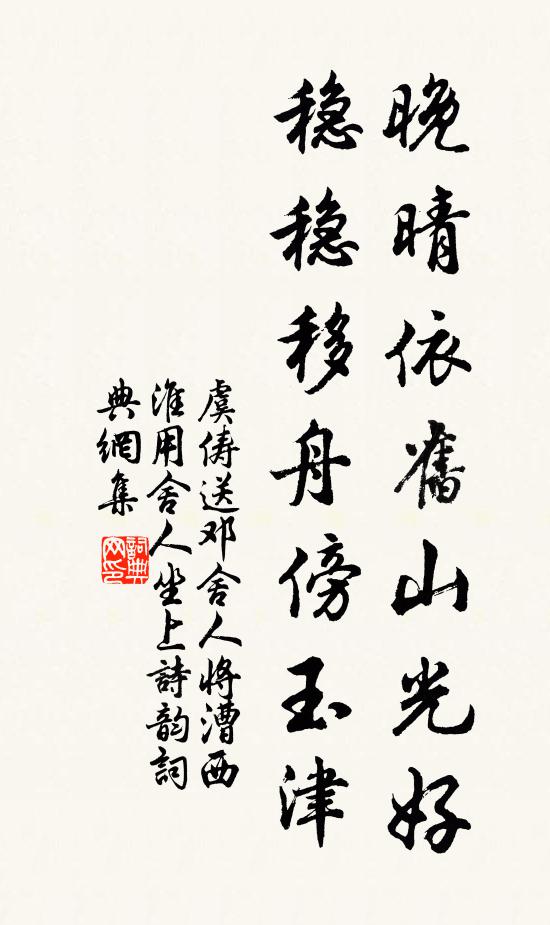 晚晴依舊山光好
穩穩移舟傍玉津
虞儔送邓舍人将漕西
淮用舍人坐上詩韵詞
典網集
詞典网印